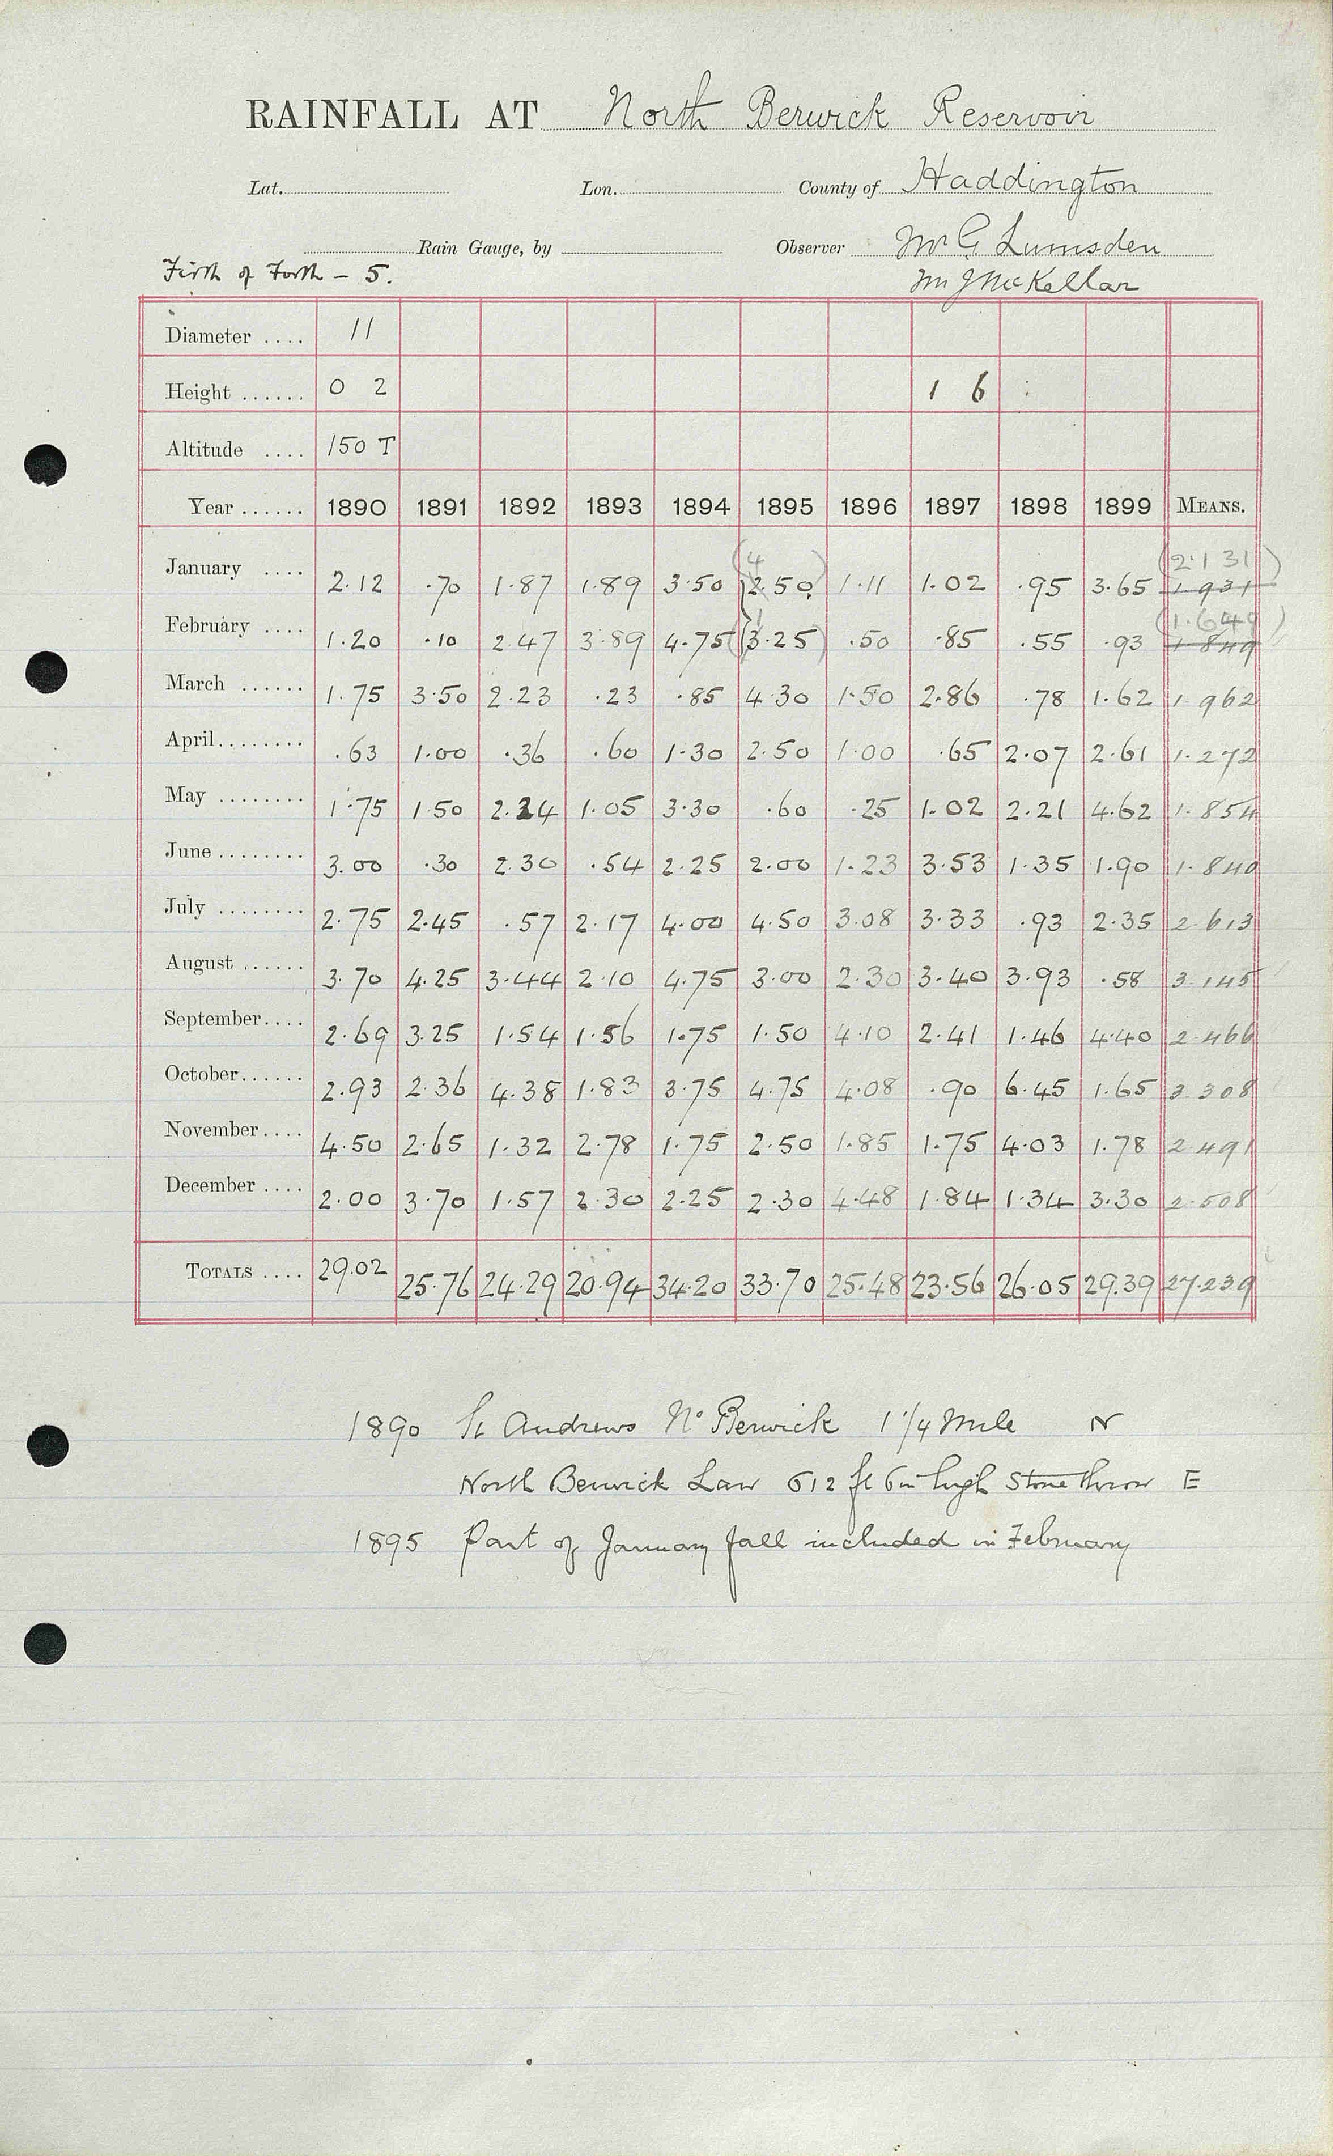 RAINFALL AT North Berwick Reservoir
Lat. Lon. County of Haddington
Rain Gauge, by Observer Mr G Lumsden
Firth of Forth - 5. Mr J McKellar
Diameter .... 11
Height ...... 0 2 1 6
Altitude .... 150 T
Year ...... 1890 1891 1892 1893 1894 1895 1896 1897 1898 1899 MEANS.
(4 ) (2.131)
January .... 2.12 .70 1.87 1.89 3.50 2.50 1.11 1.02 .95 3.65 1.931
(1.649)
February .... 1.20 .10 2.47 3.89 4.75 (3.25) .50 .85 .55 .93 1.849
March ...... 1.75 3.50 2.23 .23 .85 4.30 1.50 2.86 .78 1.62 1.962
April........ .63 1.00 .36 .60 1.30 2.50 1.00 .65 2.07 2.61 1.272
May ........ 1.75 1.50 2.24 1.05 3.30 .60 .25 1.02 2.21 4.62 1.854
June ........ 3.00 .30 2.30 .54 2.25 2.00 1.23 3.53 1.35 1.90 1.840
July ........ 2.75 2.45 .57 2.17 4.00 4.50 3.08 3.33 .93 2.35 2.613
August ...... 3.70 4.25 3.44 2.10 4.75 3.00 2.30 3.40 3.93 .58 3.145
September.... 2.69 3.25 1.54 1.56 1.75 1.50 4.10 2.41 1.46 4.40 2.466
October...... 2.93 2.36 4.38 1.83 3.75 4.75 4.08 .90 6.45 1.65 3.308
November.... 4.50 2.65 1.32 2.78 1.75 2.50 1.85 1.75 4.03 1.78 2.491
December .... 2.00 3.70 1.57 2.30 2.25 2.30 4.48 1.84 1.34 3.30 2.508
TOTALS .... 29.02 25.76 24.29 20.94 34.20 33.70 25.48 23.56 26.05 29.39 27.239
1890 St Andrews No Berwick 1 1/4 Mile N
North Berwick Law 612 ft 6in high Stone throw E
1895 Part of January fall included in February